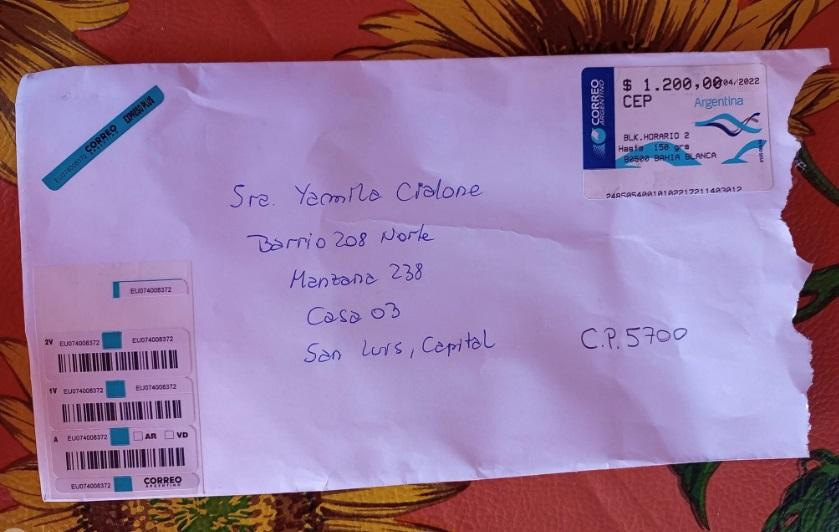 CORREO EXPRESO PLUS
CORREO
ARGENTINO
$ 1.200,00
04/2022
CEP
Argentina
BLK.HORARIO 2
Hasta 150 grs
B8500 BAHIA BLANCA
Sra. Yamila Cialone
Barrio 208 Norte
Manzana 238
Casa 03
San Luis, Capital
C.P. 5700
EU074008372
2V EU074008372 EU074008372
1V EU074008372 EU074008372
A EU074008372 AR VD
EU074008372 CORREO
ARGENTINO